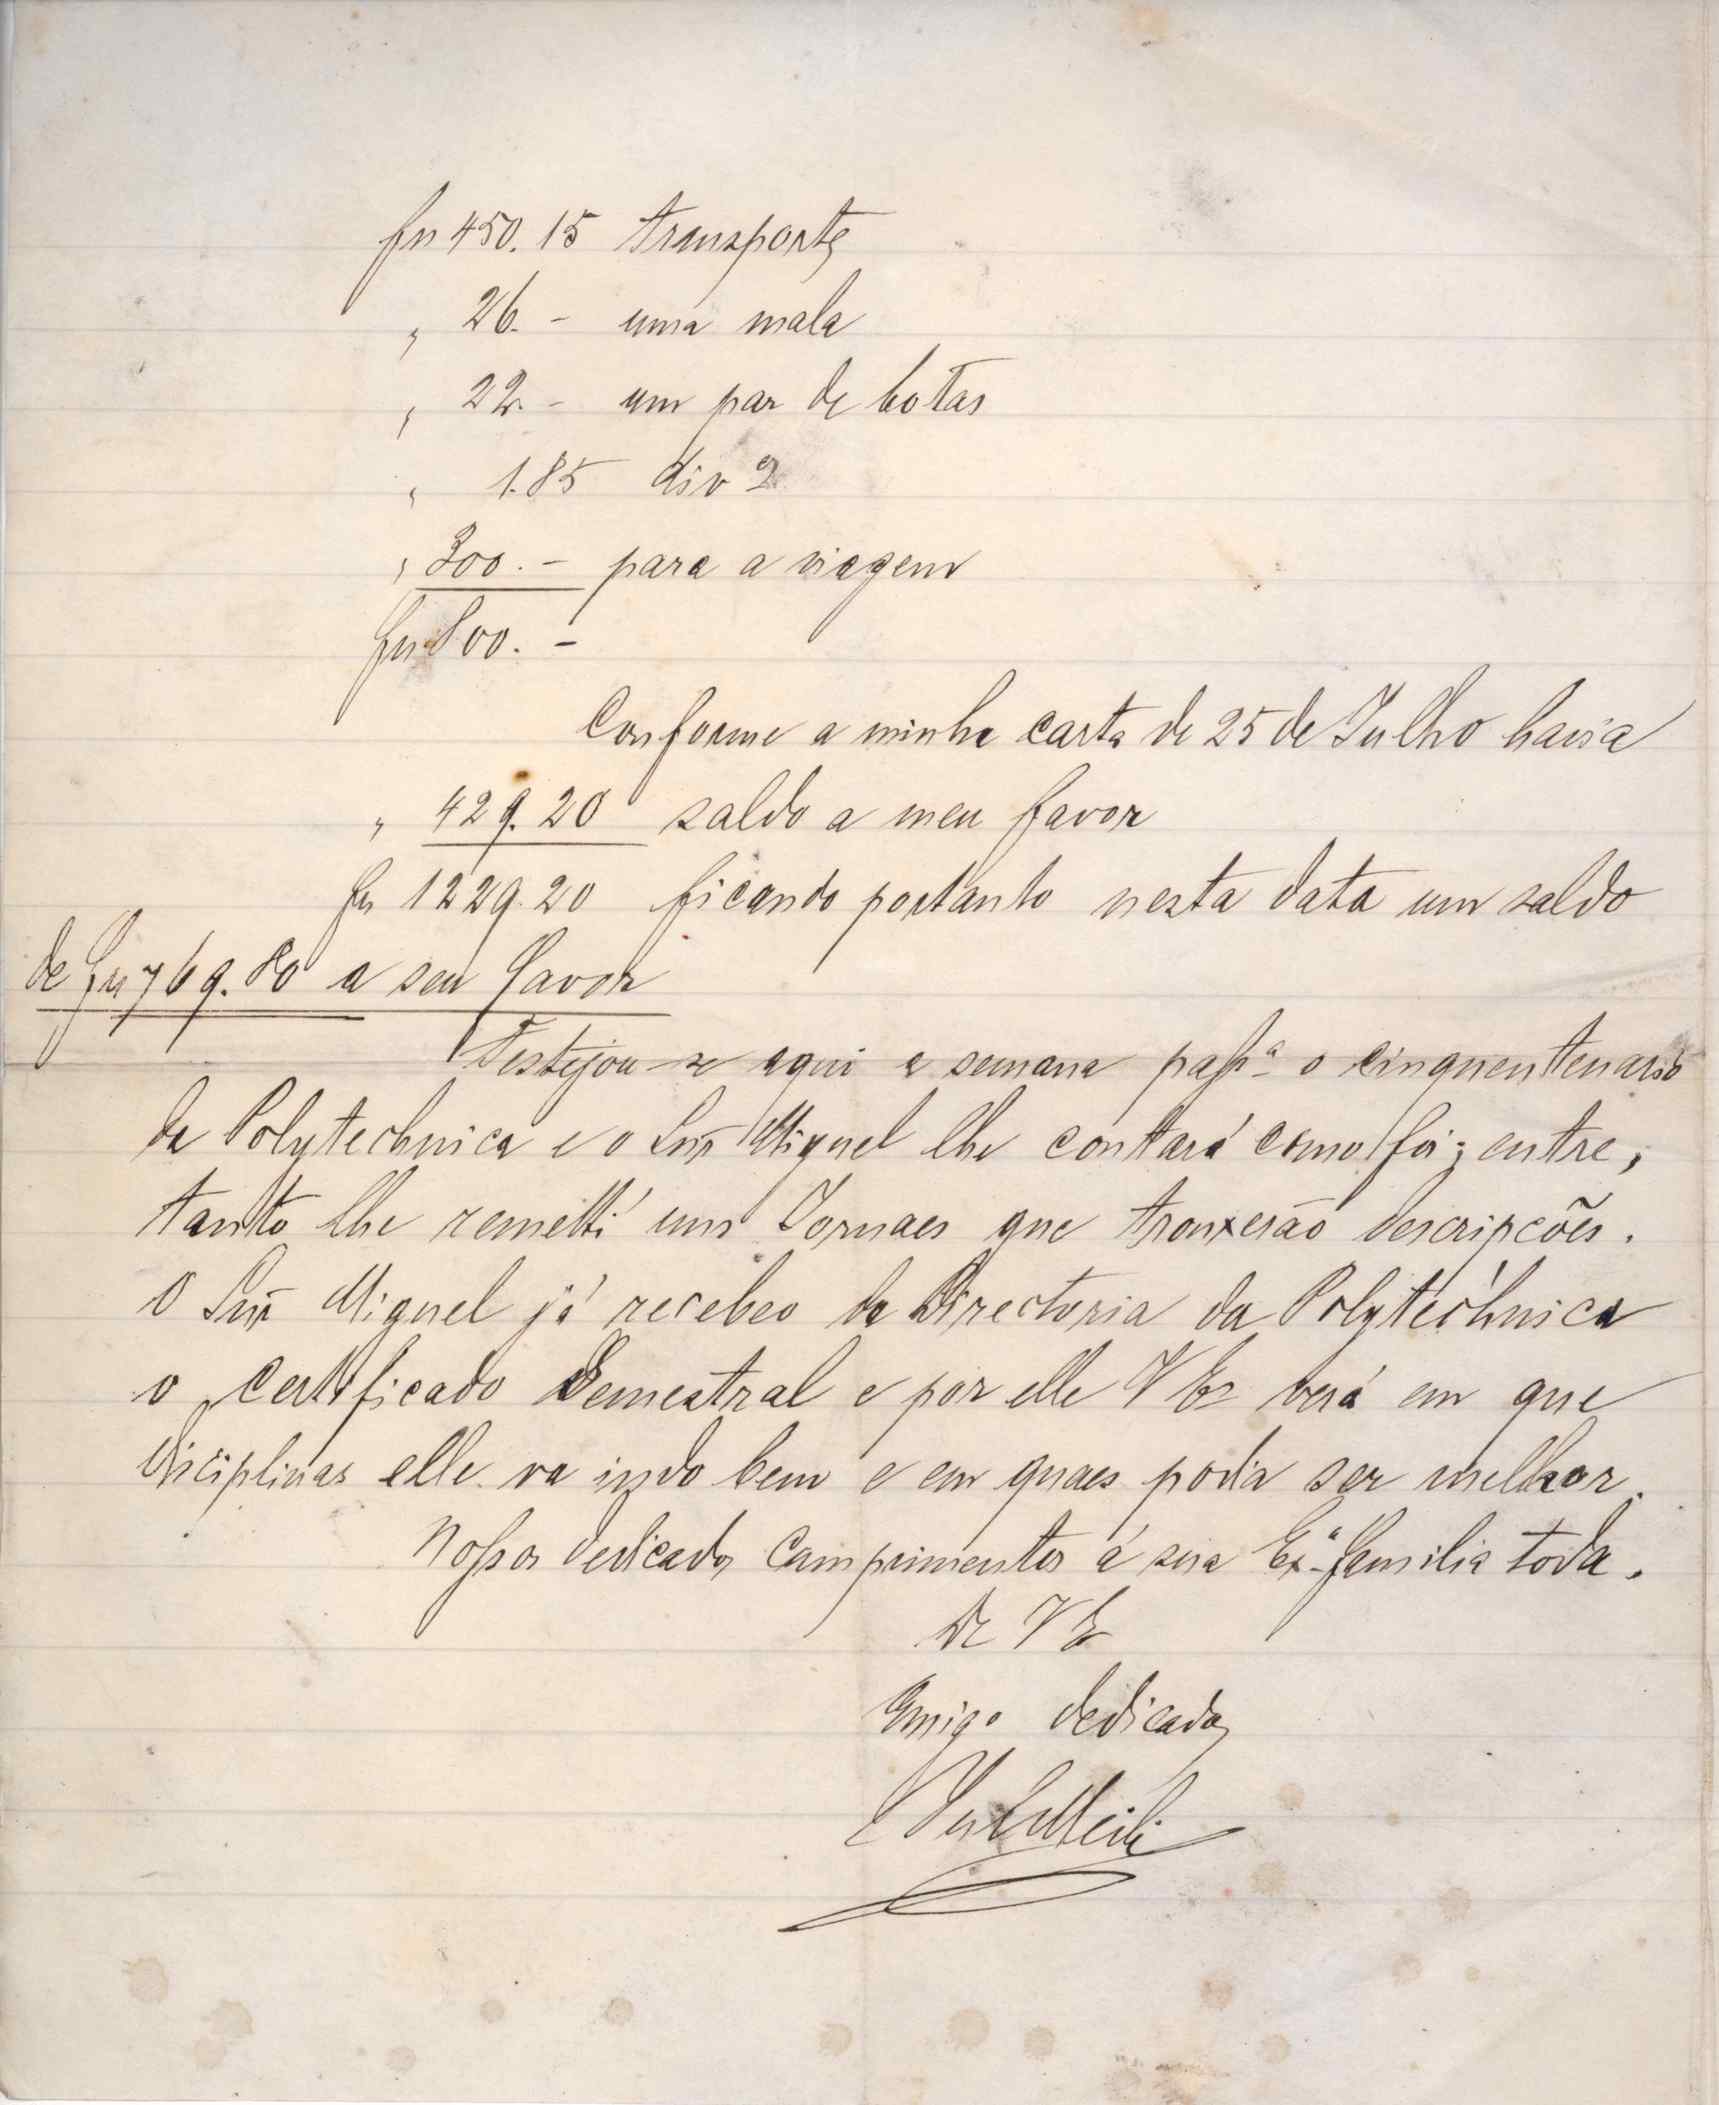 frs 450.15 transporte
" 26.- uma mala
" 22.- um par de botas
" 1.85 div
" 300.- para a viagem
frs 800.-
Conforme a minha carta de 25 de Julho havia
" 429.20 saldo a meu favor
frs 1229.20 ficando portanto nesta data um saldo
de frs 769.80 a seu favor
Festejou-se aqui a semana passª o cinquentenario
da Polytechnica e o Snr Miguel lhe contará como foi; entre,
tanto lhe remetti uns Jornaes que trouxerão descripções.
O Snr Miguel já recebeo da Directoria da Polytechnica
o certificado Semestral e por elle V Ex verá em que
disciplinas elle va indo bem e em quaes podia ser melhor.
Nossos dedicados comprimentos á sua Exª familia toda.
De V E
Amigo dedicado